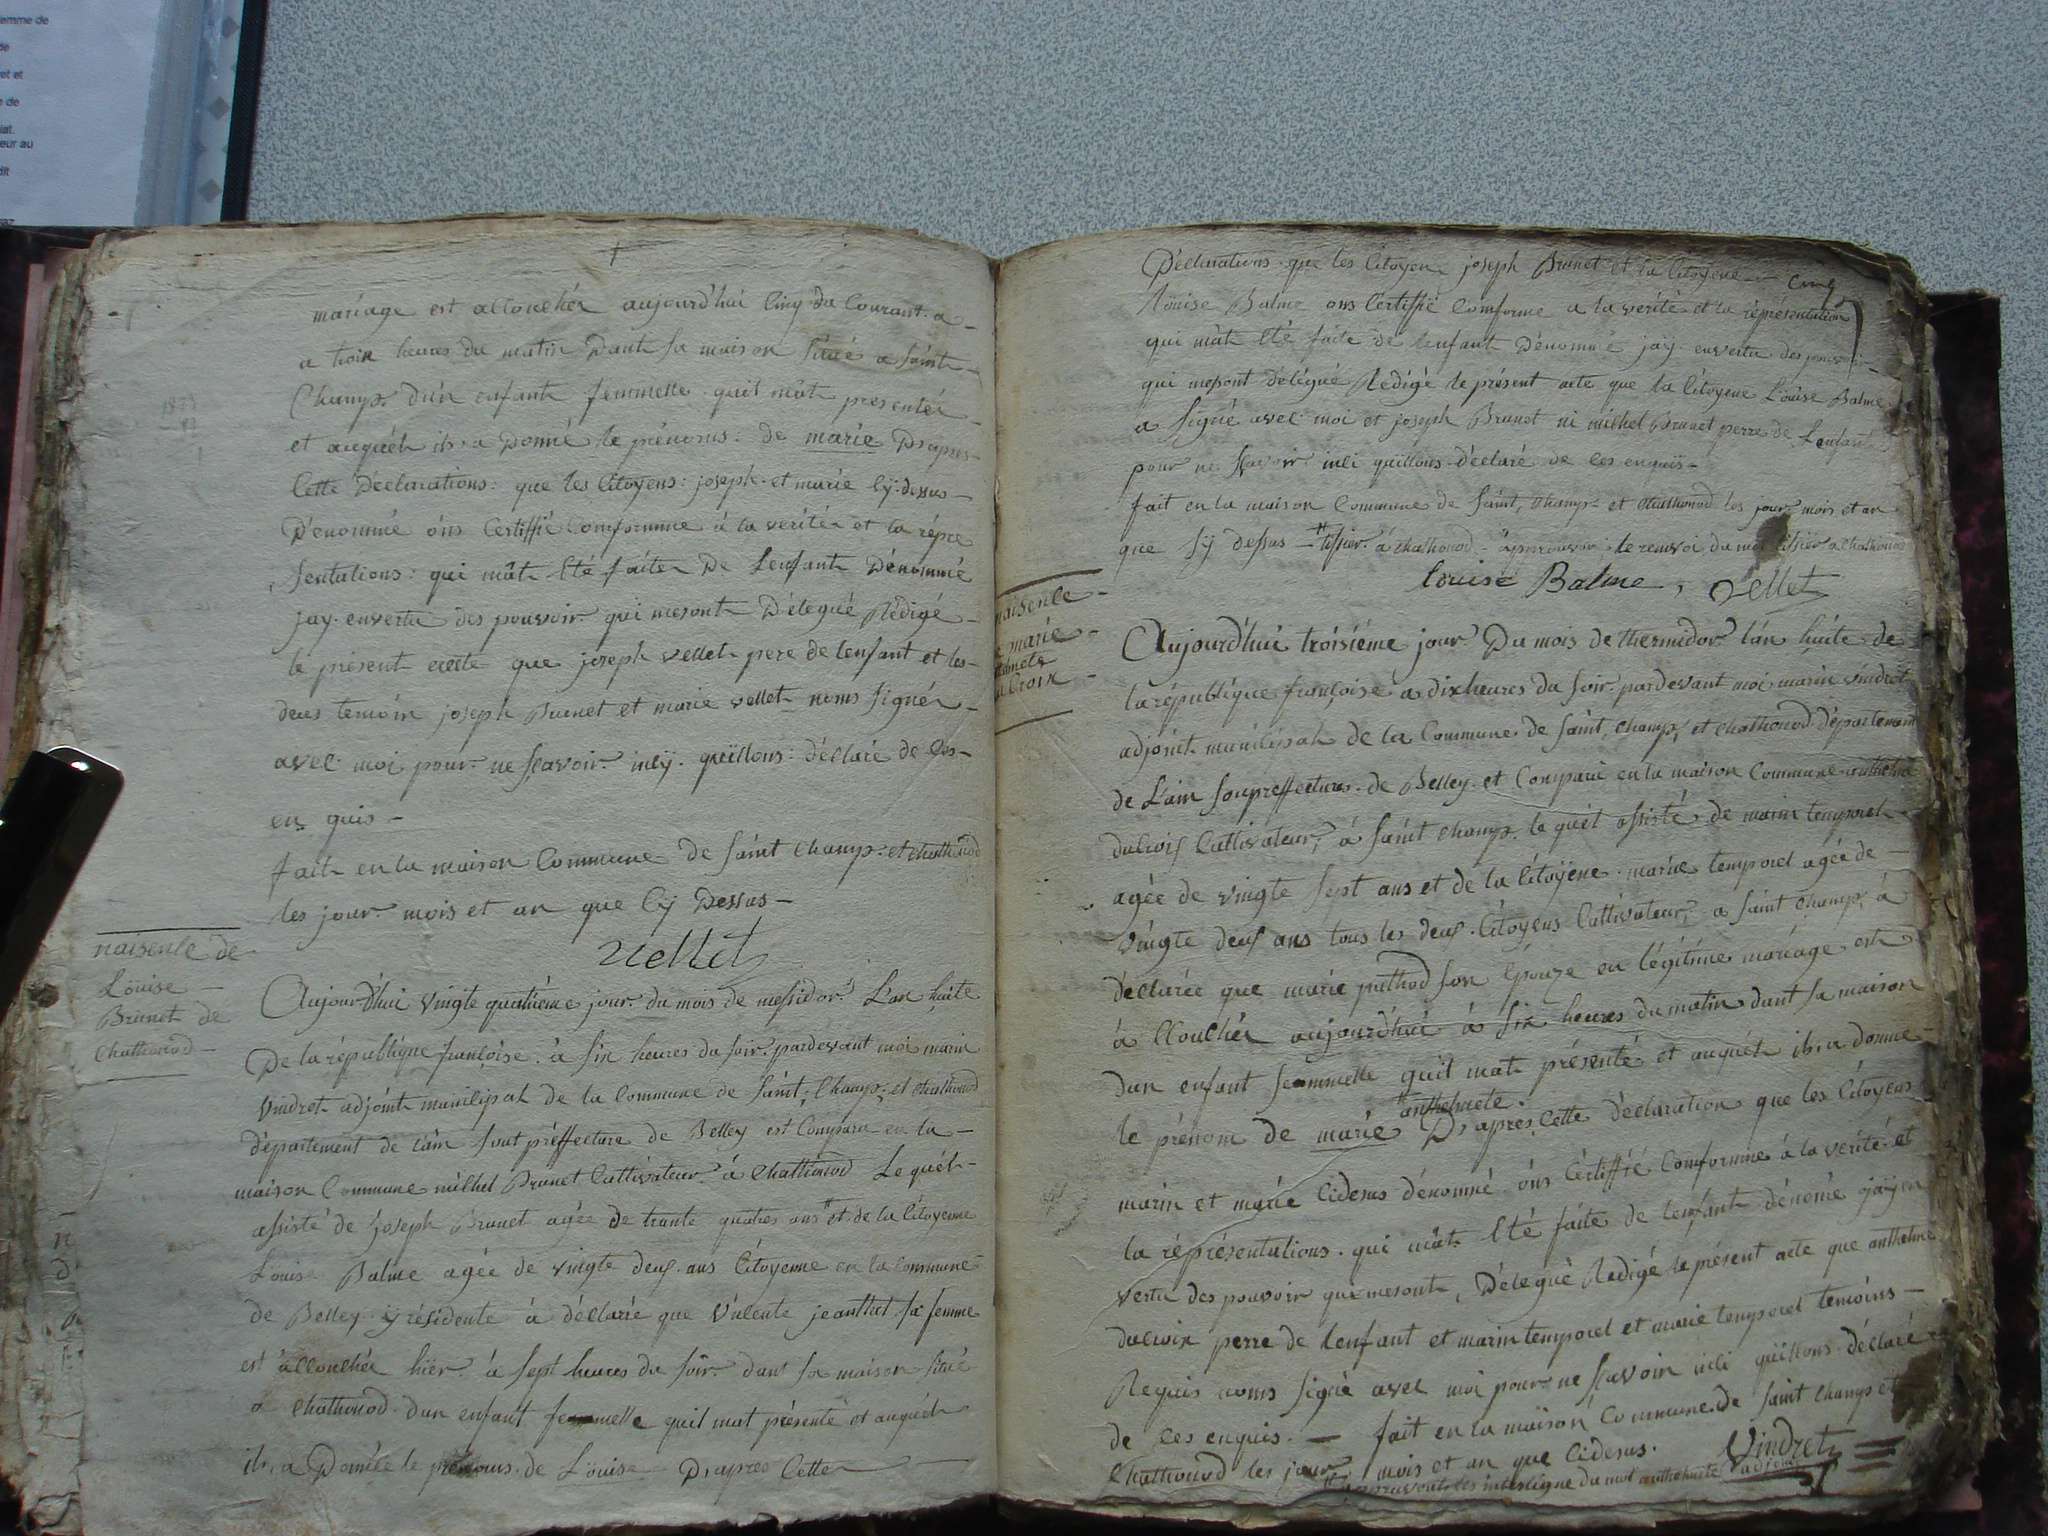 emme de
de
et et
de
iat.
eur au
dit
mariage est allouchér aujourd'hui Cinq du Courant a
a trois heures du matin Dant sa maison situé a saint
Champs d'un enfant femmelle quil mât presentér
et auquéh ils a Donné le prénoms: de marie D'apres
Cette Déclarations: que les Citoyens: joseph et marie Cÿ dessus
Dénommé ons Certiffié Conformme á la verité et la répre
sentations: qui mât Eté faite De Lenfant Dénommé
jay envertu des pouvoir qui mesont Délegué Rédigé
le présent acte que joseph vellet pere de lenfant et les
deus temoin joseph Brunet et marie vellet noms signér
avec moi pour ne scavoir incÿ quillons: déclaré de Ces
en quis
fait en la maison Commune de saint Champs et Chathonod
les jour mois et an que Cÿ Dessus
Vellet
naisence de
Löuise
Brunet de
Chathonod
Aujourd'hui vingte quatriéme jour du mois de messidor L'an huite
De la république françoise à six heures du soir pardevant moi marin
vindret adjoint municipal de la Commune de saint Champs et Chathonod
département de L'ain sout préffecture de Belley est Comparu en la
maison Commune michel Brunet Cultivateur á Chathonod Le quél
assisté de Joseph Brunet agée de trante quatres ans et de la Citoyenne
Löuise Balme agée de vingte deus ans Citoyenne en la Commune
de Belley ÿ résidente á déclarée que jeanthet sa femme
est allouchér hiër á sept heures du soir dant sa maison situé
a Chathonod dun enfant femmelle quil mat présenté et auquéh
ils a Donnée le prénoms de Löuise D'apres Cette
Cinq
Déclarations que les Citoyen joseph Brunet et la Citoyene
Löuise Balme ons Certiffié Comforme a la verité et la représentation
qui mât Eté faite de lenfant Dénommé jay envertu des pouvoir
qui mesont délégué Rédigé le présent acte que la Citoyene Löuise Balme
a signé avec moi et joseph Brunet ni michel Brunet perre de Lenfant
pour ne scavoir inci quillons déclaré de Ces enquis
fait en la maison Commune de saint Champs et Chathonod les jour mois et an
que sÿ dessus tissier á Chathonod approuvons le renvoi du mot tissier a Chathonod
louise Balme, Vellet
naisence
marie
La Croix
Aujourd'hui troisiéme jour Du mois de thermidor l'an huite de
la république françoise a dix heures du soir pardevant moi marin vindret
adjoint municipal de la Commune de saint Champs et Chathonod département
de L'ain souspreffecture de Belley et Comparu en la maison Commune anthelme
dulroix Cultivateur á saint Champs le quél assisté de marin temporel
agée de vingte sept ans et de la Citoÿene marie temporel agée de
vingte deus ans tous les deus Citoyens Cultivateur a saint Champs á
déclarée que marie puthod son épouze en légitime mariage est
á llouchér aujourd'hui á six heures du matin dant sa maison
dun enfant femmelle quil mat présenté et auquéh ils a donné
anthelmete
le prénom de marie D'apres Cette déclaration que les Citoyens
marin et marie Cidesus dénommé ons Certiffié Comformme á la verité et
la réprésentations qui mât Eté faite de lenfant dénomé jaÿ en
vertu des pouvoir qui mesont Délegué Redigé le présent acte que anthelme
dulroix perre de lenfant et marin temporel et marie temporel temoins
Requis noms signé avec moi pour ne scavoir inci quillons déclaré
de Ces enquis fait en la maison Commune de saint Champs et
Chathonod les jour mois et an que Cidesus. Vindret
approuvont les interligne du mot anthelmete adjoint